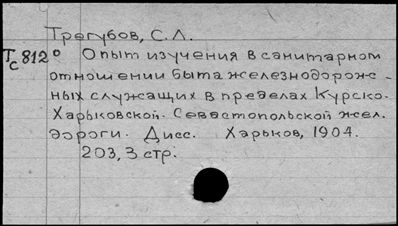 Трегубов, С.Л.
Тс812° Опыт изучения в санитарном
отношении быта железнодорож-
ных служащих в пределах Курско-
Харьковской-Севастопольской жел.
дороги. Дисс. Харьков, 1904.
203, 3 стр.